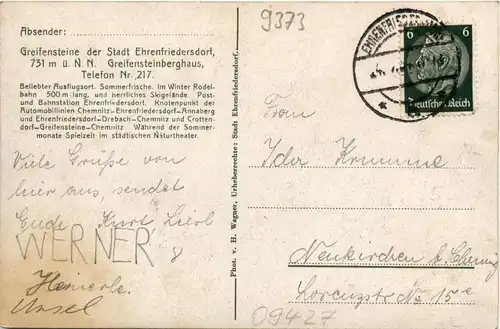 Absender:
Greifensteine der Stadt Ehrenfriedersdorf,
731 m ü. N. N. Greifensteinberghaus,
Telefon Nr. 217.
Beliebter Ausflugsort. Sommerfrische. Im Winter Rodel-
bahn 500 m lang, und herrliches Skigelände. Post-
und Bahnstation Ehrenfriedersdorf. Knotenpunkt der
Automobillinien Chemnitz-Ehrenfriedersdorf-Annaberg
und Ehrenfriedersdorf-Drebach-Chemnitz und Crotten-
dorf-Greifensteine-Chemnitz Während der Sommer-
monate Spielzeit im städtischen Naturtheater.
Viele Grüße von
hier aus, sendet
Kurt,
WERNER
Heinerle.
Ursel
Phot. v. H. Wagner, Urheberrechte: Stadt Ehrenfriedersdorf.
9373
6 6
Deutsches Reich
Frau
Neukirchen b/
15a
09427